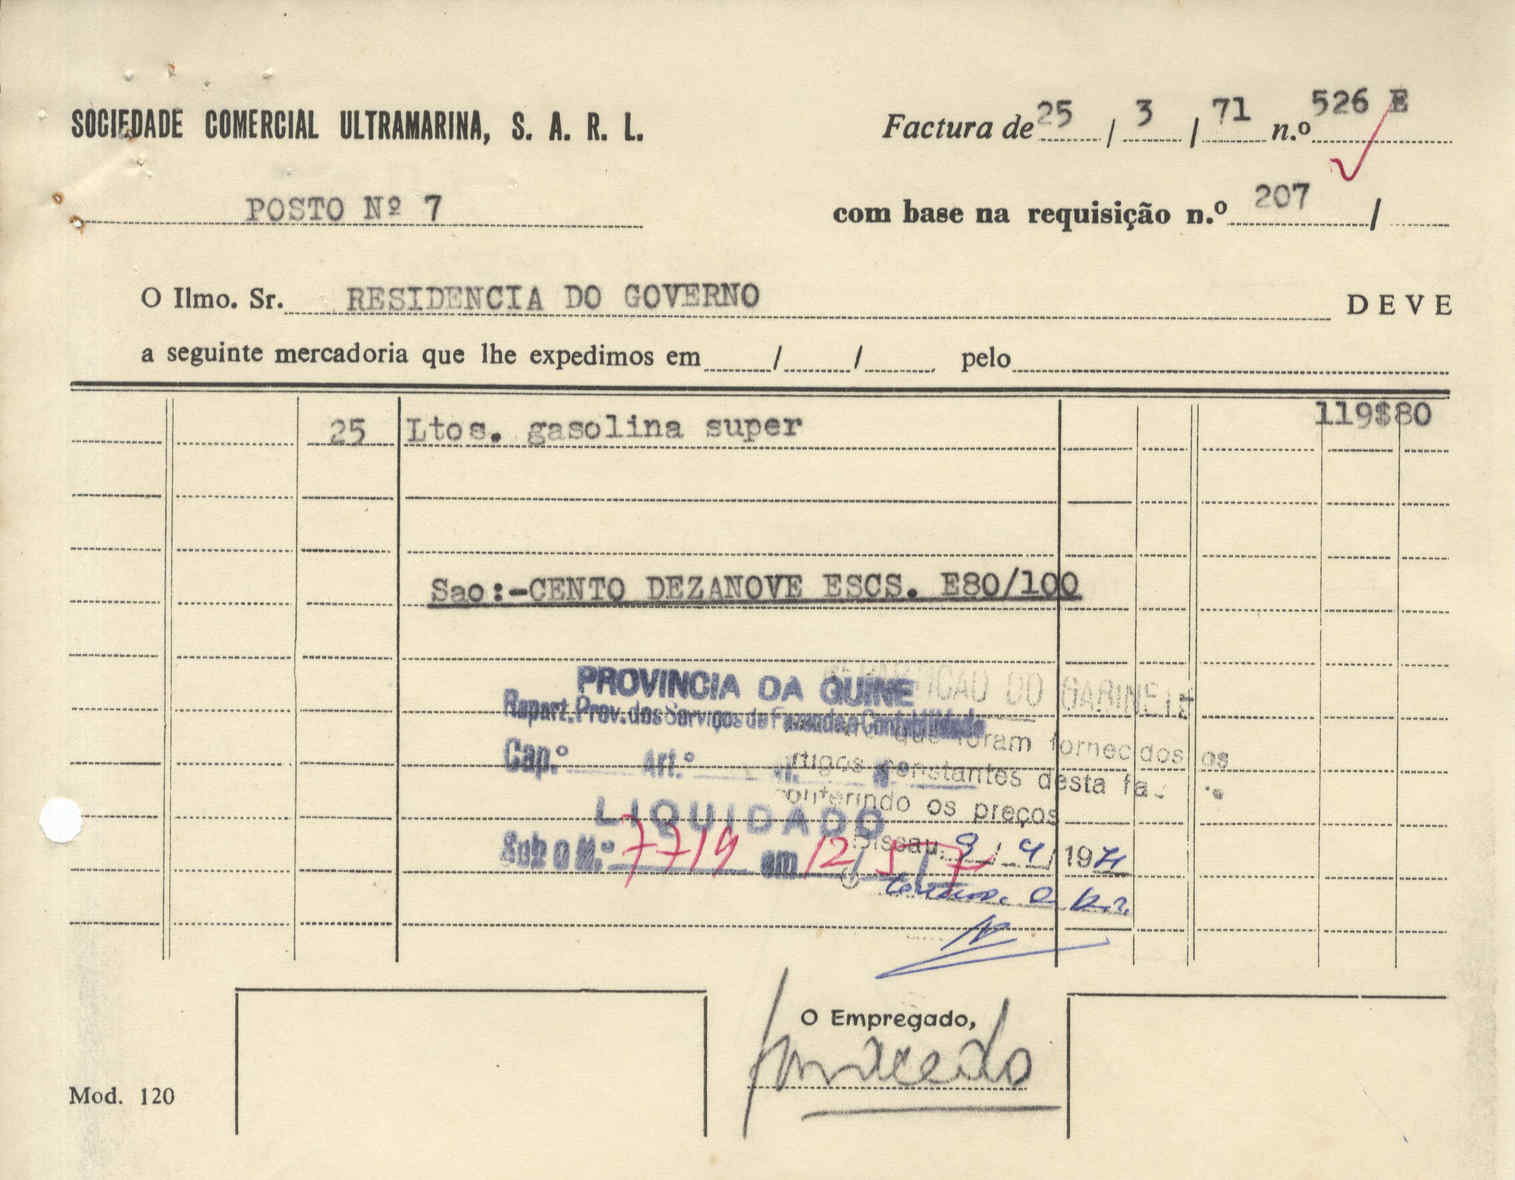 SOCIEDADE COMERCIAL ULTRAMARINA, S. A. R. L.
Factura de 25 / 3 / 71 n.º 526 E
POSTO Nº 7
com base na requisição n.º 207 /
O Ilmo. Sr. RESIDENCIA DO GOVERNO DEVE
a seguinte mercadoria que lhe expedimos em / / pelo
25 Ltos. gasolina super 119$80
Sao:-CENTO DEZANOVE ESCS. E80/100
PROVINCIA DA GUINE
DO GABINETE
Repart. Prov. dos Serviços de Fazenda e Contabilidade
que foram fornecidos os
Cap.º Art.º
artigos constantes desta
conferindo os preços
LIQUIDADO
Bissau, 9 / 4 / 1971
Sub o N.º 7719 em 12 / 5 / 7
O Empregado,
Mod. 120